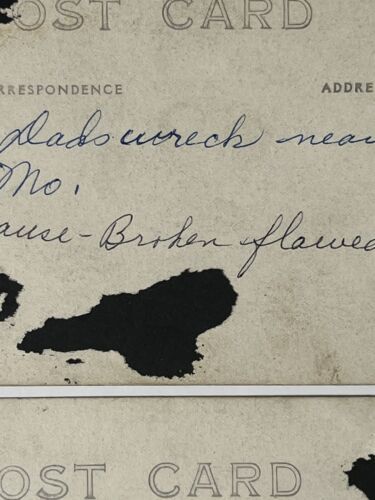 OST CARD
RRESPONDENCE ADDRE
Dads wreck near
Mo.
ause - Broken flawed
OST CARD